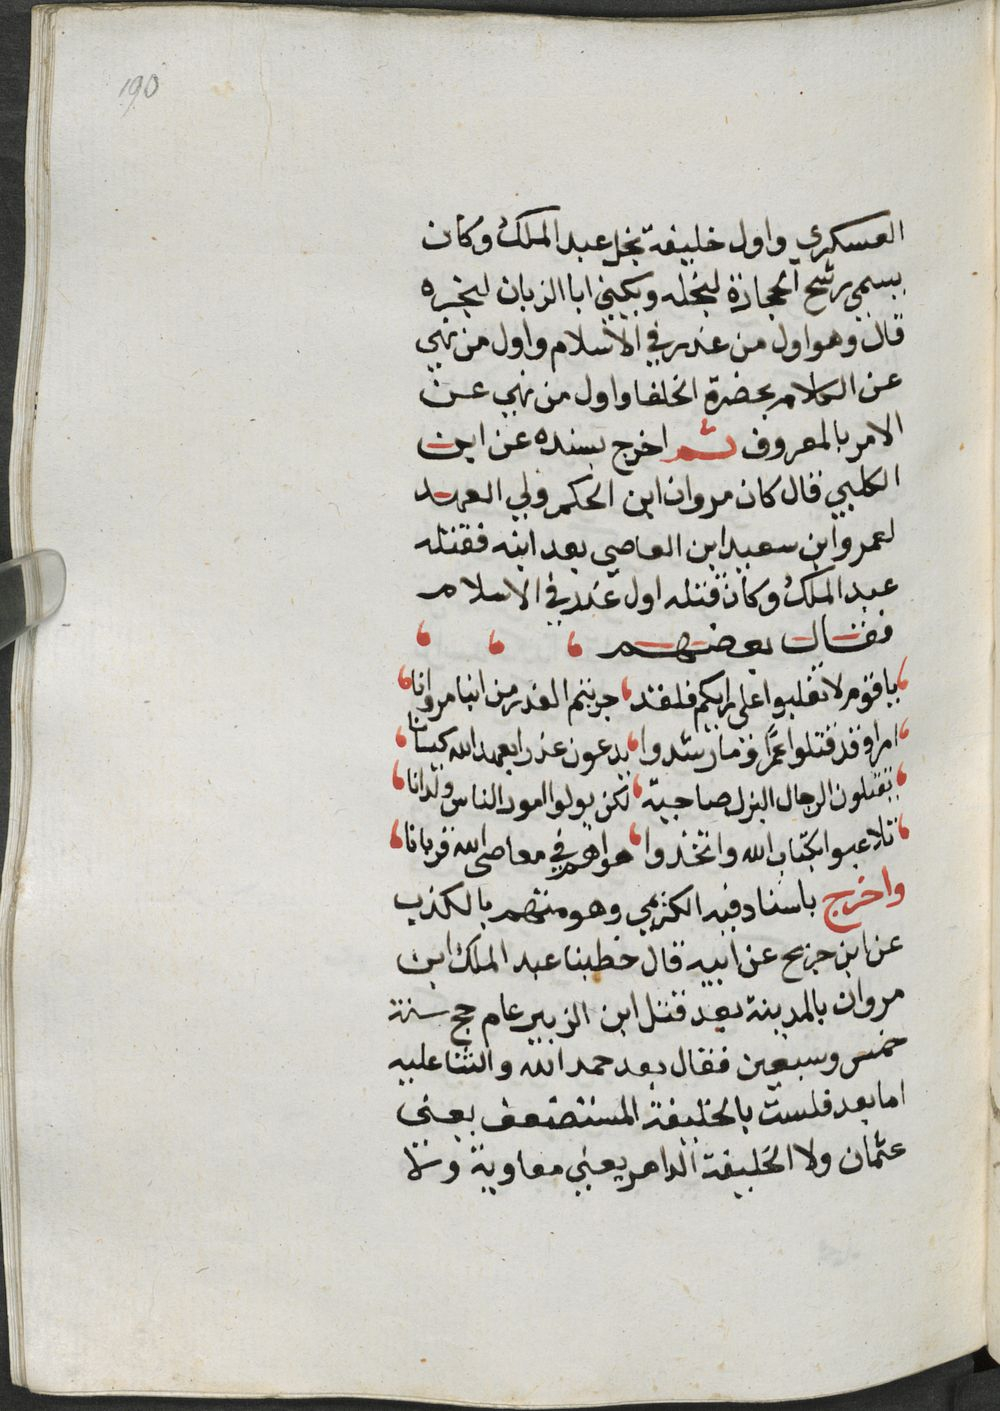 190
العسكري واول خليفة بخل عبد الملك وكان
يسمى رشح الحجارة لبخله ويكنى ابا الزبان لبخره
قال وهو اول من غدر في الاسلام واول من نهى
عن الكلام بحضرة الخلفا واول من نهى عن
الامر بالمعروف ثم اخرج بسنده عن ابن
الكلبي قال كان مروان ابن الحكم ولي العهد
لعمرو ابن سعيد ابن العاصي بعد ابنه فقتله
عبد الملك وكان قتله اول غدر في الاسلام
فقال بعضهم
يا قوم لا تغلبوا على رايكم فلقد جربتم الغدر من ابنا مروانا
امراو قد قتلوا عمرًا وما رشدوا يدعون غدرا بعهد الله كيسانا
يقتلون الرجال البزل صاحية لكن يولوا امور الناس ولدانا
تلاعبوا بكتاب الله واتخذوا هواهم في معاصي الله قربانا
واخرج باسناد فيه الكزيمي وهو متهم بالكذب
عن ابن جريح عن ابيه قال خطبنا عبد الملك ابن
مروان بالمدينة بعد قتل ابن الزبير عام حج سنة
خمس وسبعين فقال بعد حمد الله والثنا عليه
اما بعد فلست بالخليفة المستضعف يعني
عثمان ولا الخليفة الداهر يعني معاوية ولا